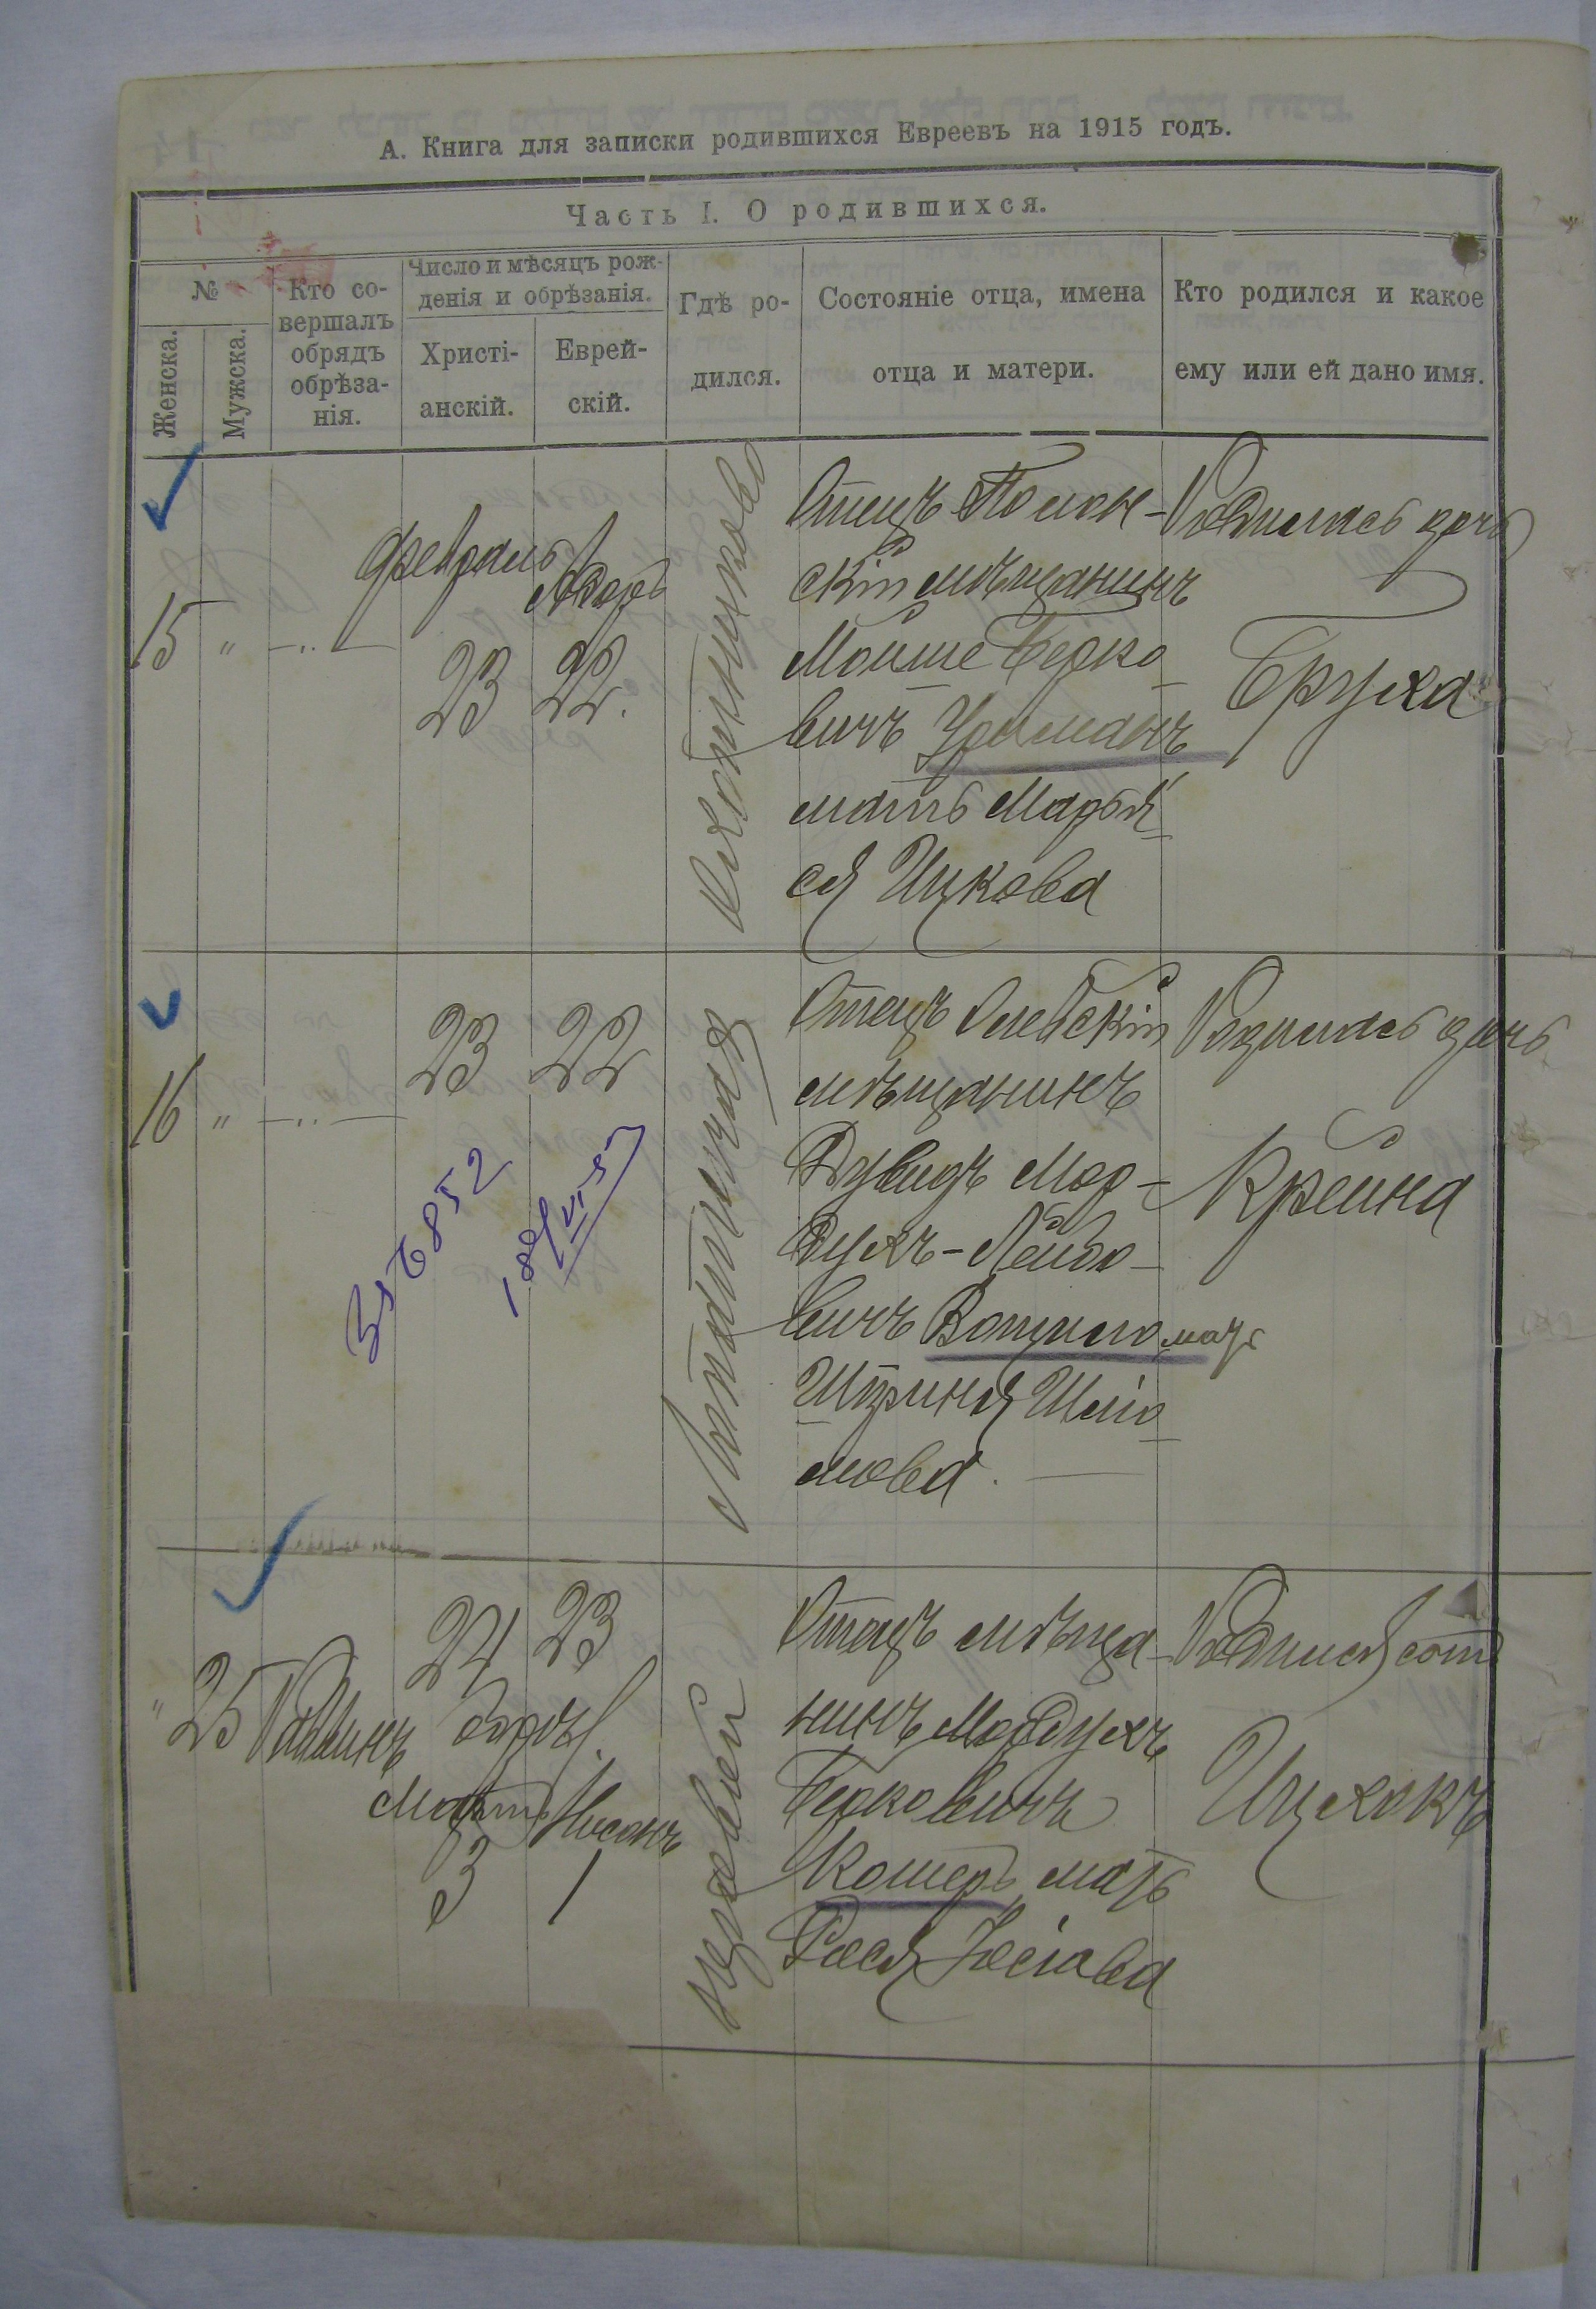 А. Книга для записки родившихся Евреевъ на 1915 годъ.
Часть I. О родившихся.
№
Женска.
Мужска.
Кто со-
вершалъ
обрядъ
обрѣза-
нія.
Число и мѣсяцъ рож-
денія и обрѣзанія.
Христі-
анскій.
Еврей-
скій.
Гдѣ ро-
дился.
Состояніе отца, имена
отца и матери.
Кто родился и какое
ему или ей дано имя.
15 " —..—
Февраль
23
Адаръ
22.
Отецъ Полон-
скій мѣщанинъ
Мойше Берко-
вичъ
мать
ся Ицкова
Родилась дочь
Бруха
16 " —..—
23
22
Отецъ Олевскій
мѣщанинъ
Дувидъ Мор-
духъ-Лейбо-
вичъ Вощило мать
Шпринця Шло-
мова.
Родилась дочь
Крейна
" 25
Раввинъ
24
23
Мартъ
3
Нисонъ
1
Отецъ мѣща-
нинъ Мордухъ
Берковичъ
Кошеръ мать
Рася
Родился сынъ
Ицхокъ